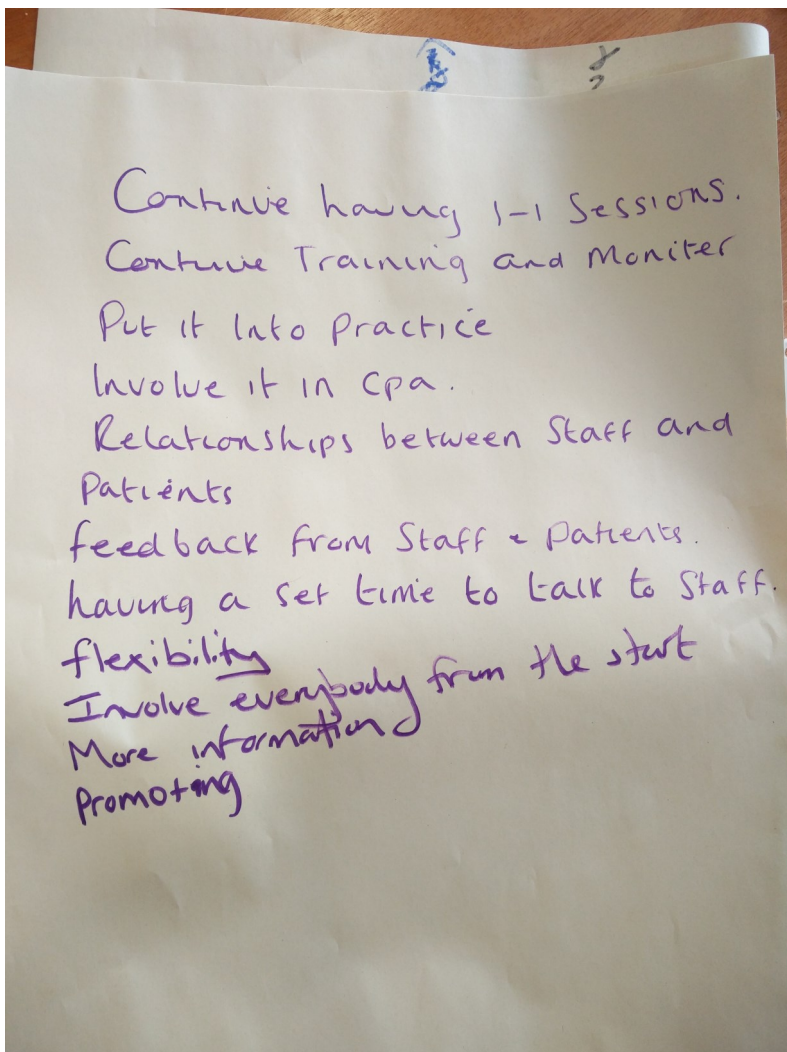 Continue having 1-1 Sessions.
Continue Training and Moniter
Put it Into Practice
Involve it in Cpa.
Relationships between Staff and
Patients
feedback from Staff & Patients.
having a set time to talk to Staff.
flexibility
Involve everybody from the start
More information
Promoting